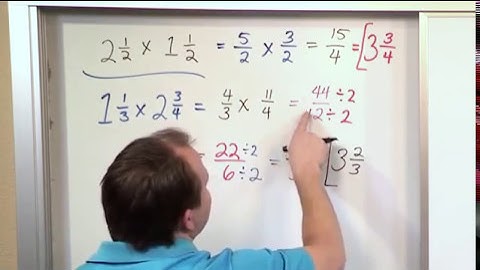 2 1/2 x 1 1/2 = 5/2 x 3/2 = 15/4 = [3 3/4
1 1/3 x 2 3/4 = 4/3 x 11/4 = 44 ÷2 / 12 ÷ 2
= 22 ÷2 / 6 ÷2 = [3 2/3